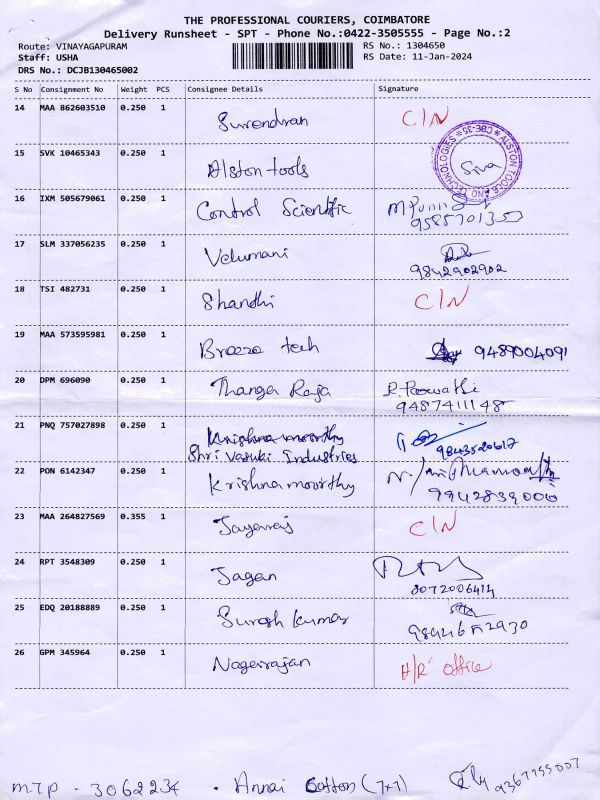 THE PROFESSIONAL COURIERS, COIMBATORE
Delivery Runsheet - SPT - Phone No.:0422-3505555 - Page No.:2
Route: VINAYAGAPURAM RS No.: 1304650
Staff: USHA RS Date: 11-Jan-2024
DRS No.: DCJB130465002
S No Consignment No Weight PCS Consignee Details Signature
14 MAA 862603510 0.250 1 Surendran C/N
15 SVK 10465343 0.250 1 Alston tools Siva
ALSTON TOOLS AND TECHNOLOGIES * CBE-35 *
16 IXM 505679061 0.250 1 Control Scientific
17 SLM 337056235 0.250 1 Velumani
9842902902
18 TSI 482731 0.250 1 Shandhi C/N
19 MAA 573595981 0.250 1 Breeze tech 9489004091
20 DPM 696090 0.250 1 Thanga Raja
9487411148
21 PNQ 757027898 0.250 1 Krishnamoorthy
Shri Vasuki Industries 9843520617
22 PON 6142347 0.250 1 Krishnamoorthy
9942839000
23 MAA 264827569 0.355 1 Jayaraj C/N
24 RPT 3548309 0.250 1 Jagan
8072006414
25 EDQ 20188889 0.250 1 Suresh kumar
26 GPM 345964 0.250 1 Nagarajan H/R office
MTP - 3062234 - Annai Cotton (7x7) 9367755007